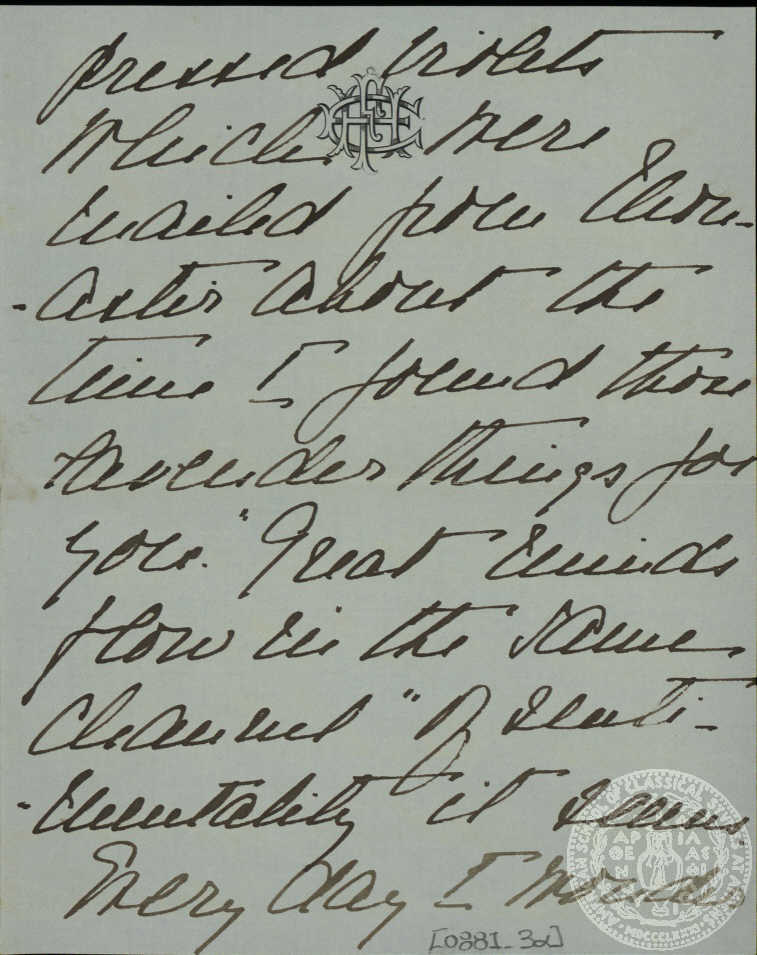 pressed violets
which were
mailed from Mon-
-astir about the
time I found those
lavender things for
you. "Great minds
flow in the same
channel" of senti-
-mentality it seems.
Every day I wonder
[0881_3a]